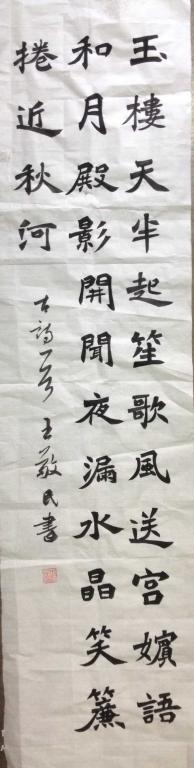 玉樓天半起笙歌風送宮嬪語
和月殿影開聞夜漏水晶笑簾
捲近秋河
古詩一首 王敬民書